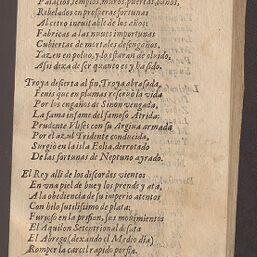 Palacios, templos, muros, puertas, baños,
Rebelados en prosperas fortunas
Al cetro ineuitable de los años:
Fabricas a las nuues importunas
Cubiertas de mortales desengaños,
Yazen en poluo, y lo estaran de oluido,
Assi dixa de ser quanto es y ha sido.
Troya desierta al fin, Troya abrasada,
Fenis que en plumas reseruò la vida
Por los engaños de Sinon vengada,
La fama infame del famoso Atrida:
Prudente Vlises con su Argiua armada
Por el azul Tridente conducida,
Surgio en la isla Eolia, derrotado
De las fortunas de Neptuno ayrado.
El Rey alli de los discordes vientos
En vna piel de buey los prende, y ata,
A la obediencia de su imperio atentos
Con hilo sutilissimo de plata:
Furioso en la prision, sus mouimientos
El Aquilon Setentrional desata
El Abrego (dexando el Medio dia)
Romper la carcel rapido porfia.